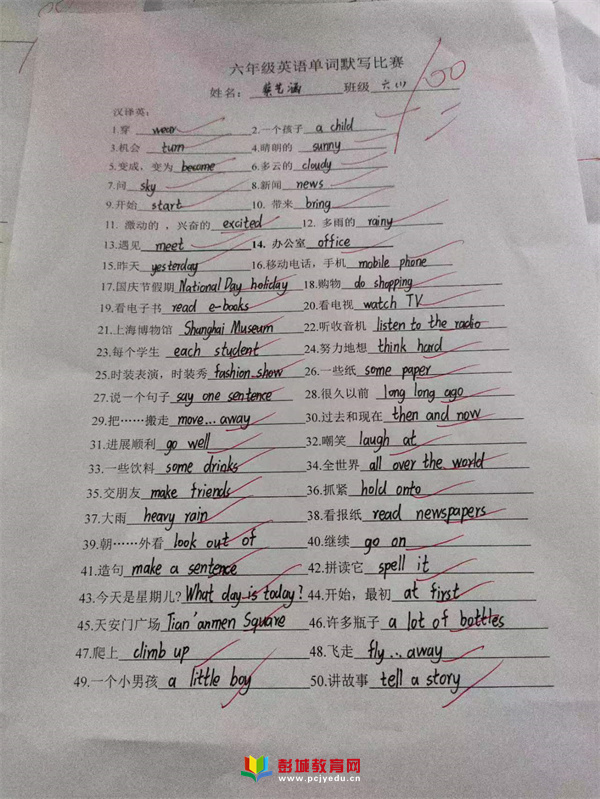 六年级英语单词默写比赛
姓名： 蔡艺涵 班级 六(1) 100
汉译英:
1.穿 wear 2.一个孩子 a child
3.机会 turn 4.晴朗的 sunny
5.变成，变为 become 6.多云的 cloudy
7.问 sky 8.新闻 news
9.开始 start 10. 带来 bring
11. 激动的 ，兴奋的 excited 12. 多雨的 rainy
13.遇见 meet 14. 办公室 office
15.昨天 yesterday 16.移动电话，手机 mobile phone
17.国庆节假期 National Day holiday 18.购物 do shopping
19.看电子书 read e-books 20.看电视 watch TV
21.上海博物馆 Shanghai Museum 22.听收音机 listen to the radio
23.每个学生 each student 24.努力地想 think hard
25.时装表演，时装秀 fashion show 26.一些纸 some paper
27.说一个句子 say one sentence 28.很久以前 long long ago
29.把……搬走 move...away 30.过去和现在 then and now
31.进展顺利 go well 32.嘲笑 laugh at
33.一些饮料 some drinks 34.全世界 all over the world
35.交朋友 make friends 36.抓紧 hold onto
37.大雨 heavy rain 38.看报纸 read newspapers
39.朝……外看 look out of 40.继续 go on
41.造句 make a sentence 42.拼读它 spell it
43.今天是星期几? What day is today? 44.开始，最初 at first
45.天安门广场 Tian'anmen Square 46.许多瓶子 a lot of bottles
47.爬上 climb up 48.飞走 fly...away
49.一个小男孩 a little boy 50.讲故事 tell a story
彭城教育网
www.pcjyedu.cn